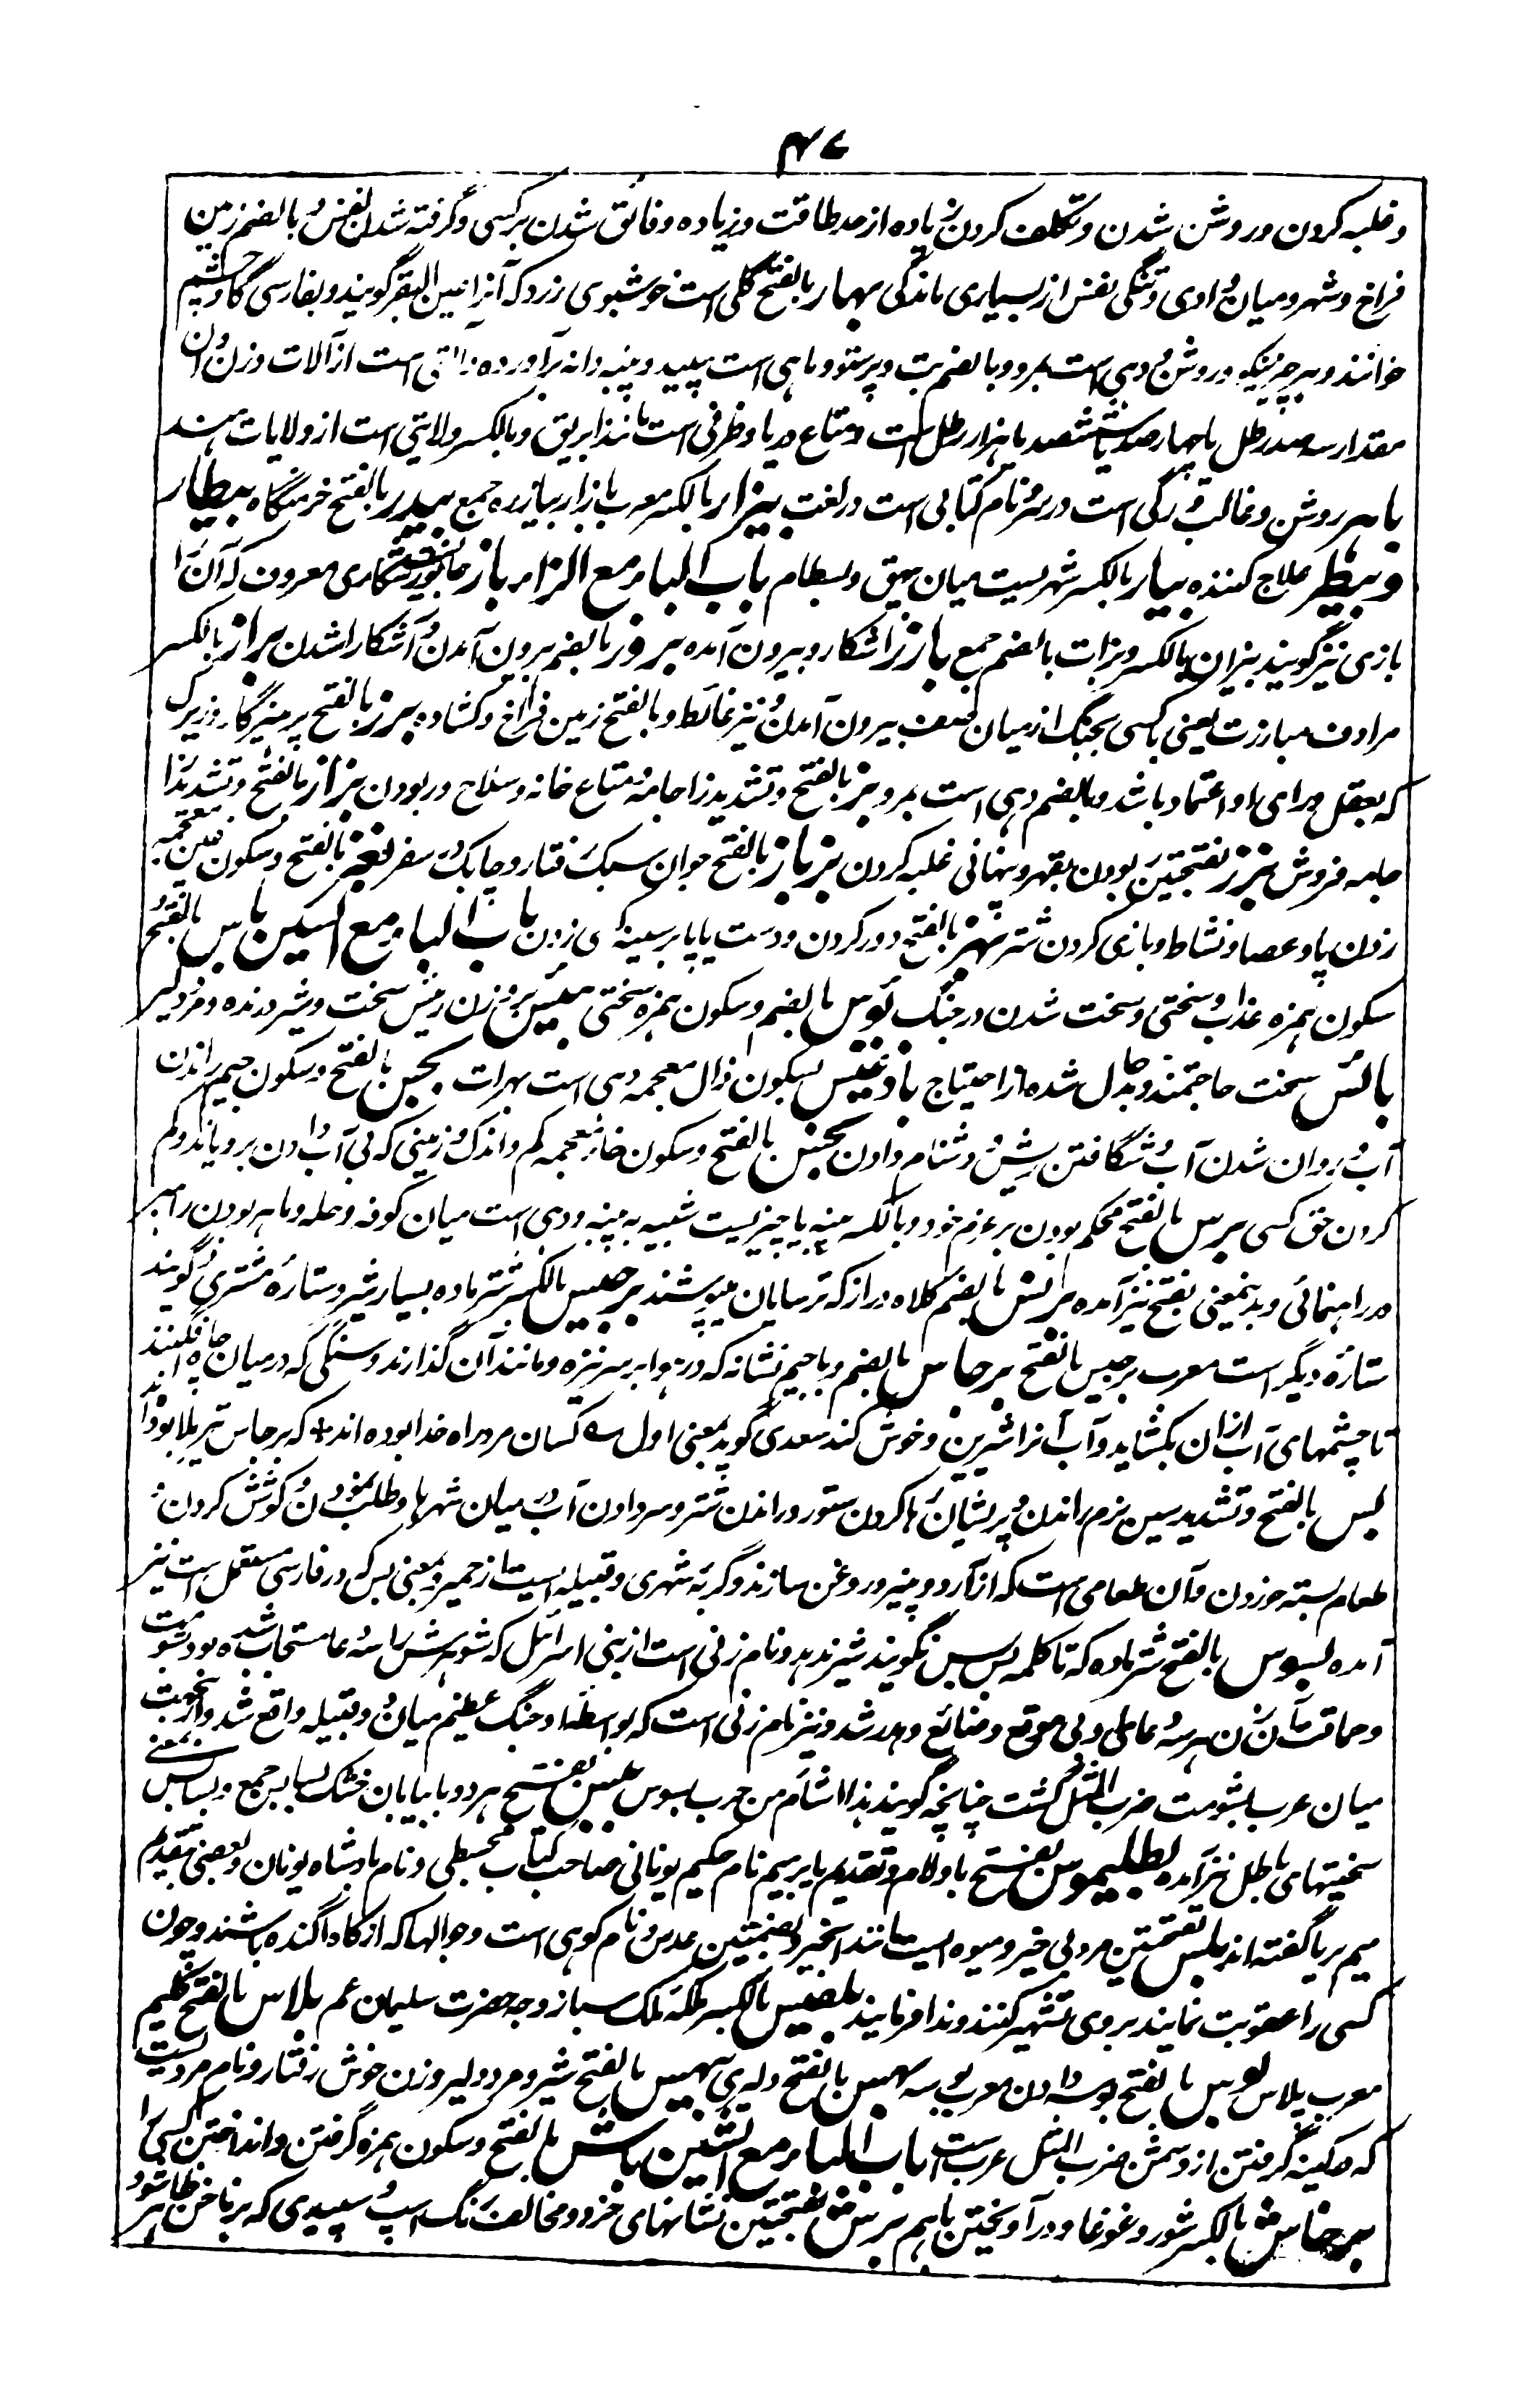 ۴۷
و غلبه کردن و روشن شدن و تکلف کردن زیاده از حد طاقت و زیاده و فائق شدن بر کسی و گرفته شدن نفس و بالضم زمین
فراخ و شهر و میان وادی و تنگی نفس از بسیاری ماندگی بهار بالفتح گلی است خوشبوی زرد که آنرا عین البقر گویند و بفارسی گاوچشم
خوانند و هر چیز نیکو و روشن و دهی است بمرو و بالضم بت و پرستو و ماهی است سپید و پنبه دانه برآورده و آلتی است از آلات وزن و آن
مقدار سه صد رطل یا چهار صد یا ششصد یا هزار رطل است و متاع دریا و ظرفی است مانند ابریق و بالکسر ولایتی است از ولایات هند
باهر روشن و غالب و رگی است در سر و نام کتابی است در لغت بیزار بالکسر معرب بازیار بیازره جمع بیدر بالفتح خرمنگاه بیطار
و بیطر علاج کننده بیار بالکسر شهریست میان بیهق و بسطام باب الباء مع الزاء باز جانور شکاری معروف که آن را
بازی نیز گویند بیزان بالکسر و بزات بالضم جمع بارز آشکار و بیرون آمده بروز بالضم بیرون آمدن و آشکارا شدن براز بالکسر
مرادف مبارزت یعنی با کسی بجنگ از میان صف بیرون آمدن و نیز غائط و بالفتح زمین فراخ و گشاده برز بالفتح پرهیزگار و زیرک
که بعقل و رای او اعتماد باشد و بالضم دهی است بمرو بز بالفتح و تشدید زا جامه و متاع خانه و سلاح و ربودن بزاز بالفتح و تشدید زا
جامه فروش بزز بفتحتین ربودن بقهر و پنهانی غلبه کردن بزباز بالفتح جوان سبک رفتار و چابک در سفر بغز بالفتح و سکون غین معجمه
زدن پا و عصا و نشاط و بازی کردن شتر بهز بالفتح دور کردن و دست یا پا بر سینه کسی زدن باب الباء مع السین باس بالفتح و
سکون همزه عذاب و سختی و سخت شدن در جنگ بؤس بالضم و سکون همزه سختی بئیس بر وزن رئیس سخت و شیر درنده و مرد دلیر
بائس سخت حاجتمند و بدحال شده از احتیاج بادغیس بسکون ذال معجمه دهی است بهرات بجس بالفتح و سکون جیم راندن
آب و روان شدن آب و شگافتن ریش و دشنام دادن بخس بالفتح و سکون خاء معجمه کم و اندک و زمینی که بی آب دادن برویاند و کم
کردن حق کسی برس بالفتح محکم بودن بر عزم خود و بالکسر پنبه یا چیزیست شبیه به پنبه و دهی است میان کوفه و حله و ماهر بودن راهبر
در راهنمائی و بدینمعنی بفتح نیز آمده برنس بالضم کلاه دراز که ترسایان می‌پوشند برجیس بالکسر شتر ماده بسیار شیر و ستاره مشتری و گویند
ستاره دیگر است معرب برجیس بالفتح برجاس بالضم و با جیم نشانه که در هوا بر سر نیزه و مانند آن گذارند و سنگی که در میان چاه افگنند
تا چشمهای آب ازان بکشاید و آب آنرا شیرین و خوش کند سعدی گوید بمعنی اول ؎ کسان مرد راه خدا بوده اند * که برجاس تیر بلا بوده اند
بس بالفتح و تشدید سین نرم راندن و پریشان رها کردن ستور و راندن شتر و سر دادن آب در میان شهرها و طلب نمودن و کوشش کردن و
طعام بسته خوردن و آن طعامی است که از آرد و پنیر و روغن سازند و گربه شهری و قبیله ایست از حمیر و بمعنی بس که در فارسی مستعمل است نیز
آمده بسوس بالفتح شتر ماده که تا کلمه بس بس نگویند شیر ندهد و نام زنی است از بنی اسرائیل که شوهرش را سه دعا مستجاب شده بود بشومت
و حماقت آن زن هر سه دعا بی موقع و ضائع و هدر شد و نیز نام زنی است که بواسطه او جنگ عظیم میان دو قبیله واقع شد و ازینجهت
میان عرب بشومت ضرب المثل گشت چنانچه گویند هذا اشأم من حرب بسوس بسبس بفتح هر دو با بیابان خشک بسابس جمع و بسابس بمعنی
سخنیهای باطل نیز آمده بطلیموس بفتح با و لام و تقدیم یا بر میم نام حکیم یونانی صاحب کتاب مجسطی و نام پادشاه یونان و بعضی بتقدیم
میم بر یا گفته اند بلس بفتحتین مرد بی خیر و میوه ایست مانند انجیر و بضمتین عدس و نام کوهی است و جوالها که از کاه آگنده باشند و چون
کسی را عقوبت نمایند بر وی تشهیر کنند و ندا فرمایند بلقیس بالکسر ملکه ملک سبا زوجه حضرت سلیمان عم بلاس بالفتح گلیم
معرب پلاس بوس بالفتح بوسه دادن معرب بوسه بهس بالفتح دلیری بیهس بالفتح شیر و مرد دلیر و زن خوش رفتار و نام مردیست
که در کینه گرفتن از دشمن ضرب المثل عرب است باب الباء مع الشین باش بالفتح و سکون همزه گرفتن و انداختن کسی را
برخاش بالکسر شور و غوغا و در آویختن باهم برش بفتحتین نشانهای خرد و مخالف رنگ اسپ و سپیدی که بر ناخن ظاهر شود